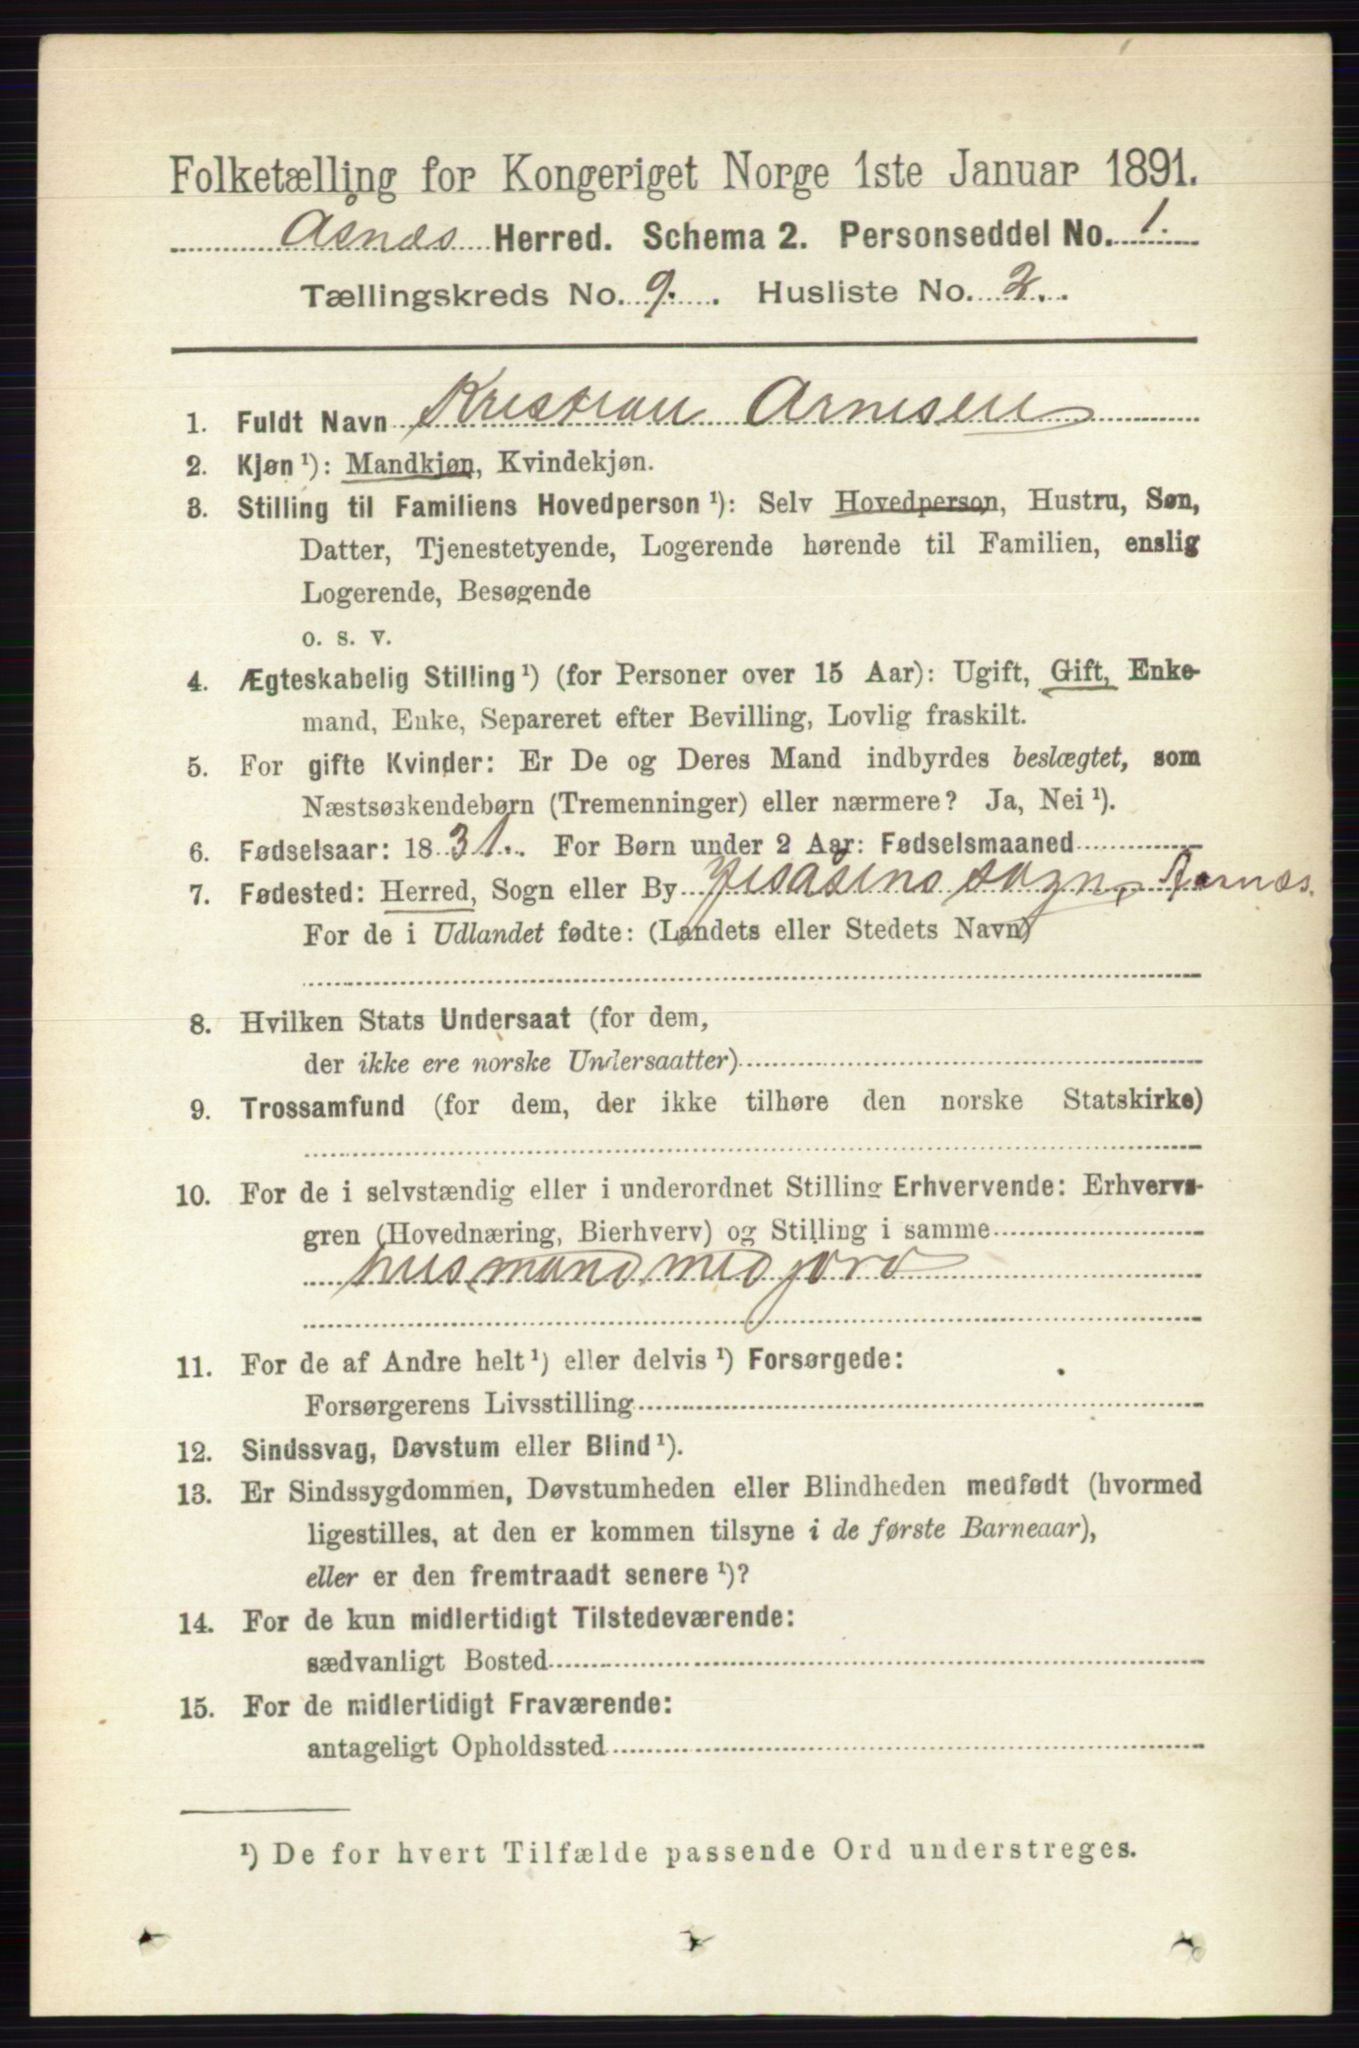 Folketælling for Kongeriget Norge 1ste Januar 1891.
Åsnæs Herred. Schema 2. Personseddel No. 1.
Tællingskreds No. 9. Husliste No. 2.
1. Fuldt Navn Kristian Arnesen
2. Kjøn ¹): Mandkjøn, Kvindekjøn.
3. Stilling til Familiens Hovedperson ¹): Selv Hovedperson, Hustru, Søn,
Datter, Tjenestetyende, Logerende hørende til Familien, enslig
Logerende, Besøgende
o. s. v.
4. Ægteskabelig Stilling ¹) (for Personer over 15 Aar): Ugift, Gift, Enke-
mand, Enke, Separeret efter Bevilling, Lovlig fraskilt.
5. For gifte Kvinder: Er De og Deres Mand indbyrdes beslægtet, som
Næstsøskendebørn (Tremenninger) eller nærmere? Ja, Nei ¹).
6. Fødselsaar: 1831. For Børn under 2 Aar: Fødselsmaaned
7. Fødested: Herred, Sogn eller By sogn,
For de i Udlandet fødte: (Landets eller Stedets Navn)
8. Hvilken Stats Undersaat (for dem,
der ikke ere norske Undersaatter)
9. Trossamfund (for dem, der ikke tilhøre den norske Statskirke)
10. For de i selvstændig eller i underordnet Stilling Erhvervende: Erhvervs-
gren (Hovednæring, Bierhverv) og Stilling i samme
husmand med jord
11. For de af Andre helt ¹) eller delvis ¹) Forsørgede:
Forsørgerens Livsstilling
12. Sindssvag, Døvstum eller Blind ¹).
13. Er Sindssygdommen, Døvstumheden eller Blindheden medfødt (hvormed
ligestilles, at den er kommen tilsyne i de første Barneaar),
eller er den fremtraadt senere ¹)?
14. For de kun midlertidigt Tilstedeværende:
sædvanligt Bosted
15. For de midlertidigt Fraværende:
antageligt Opholdssted
¹) De for hvert Tilfælde passende Ord understreges.